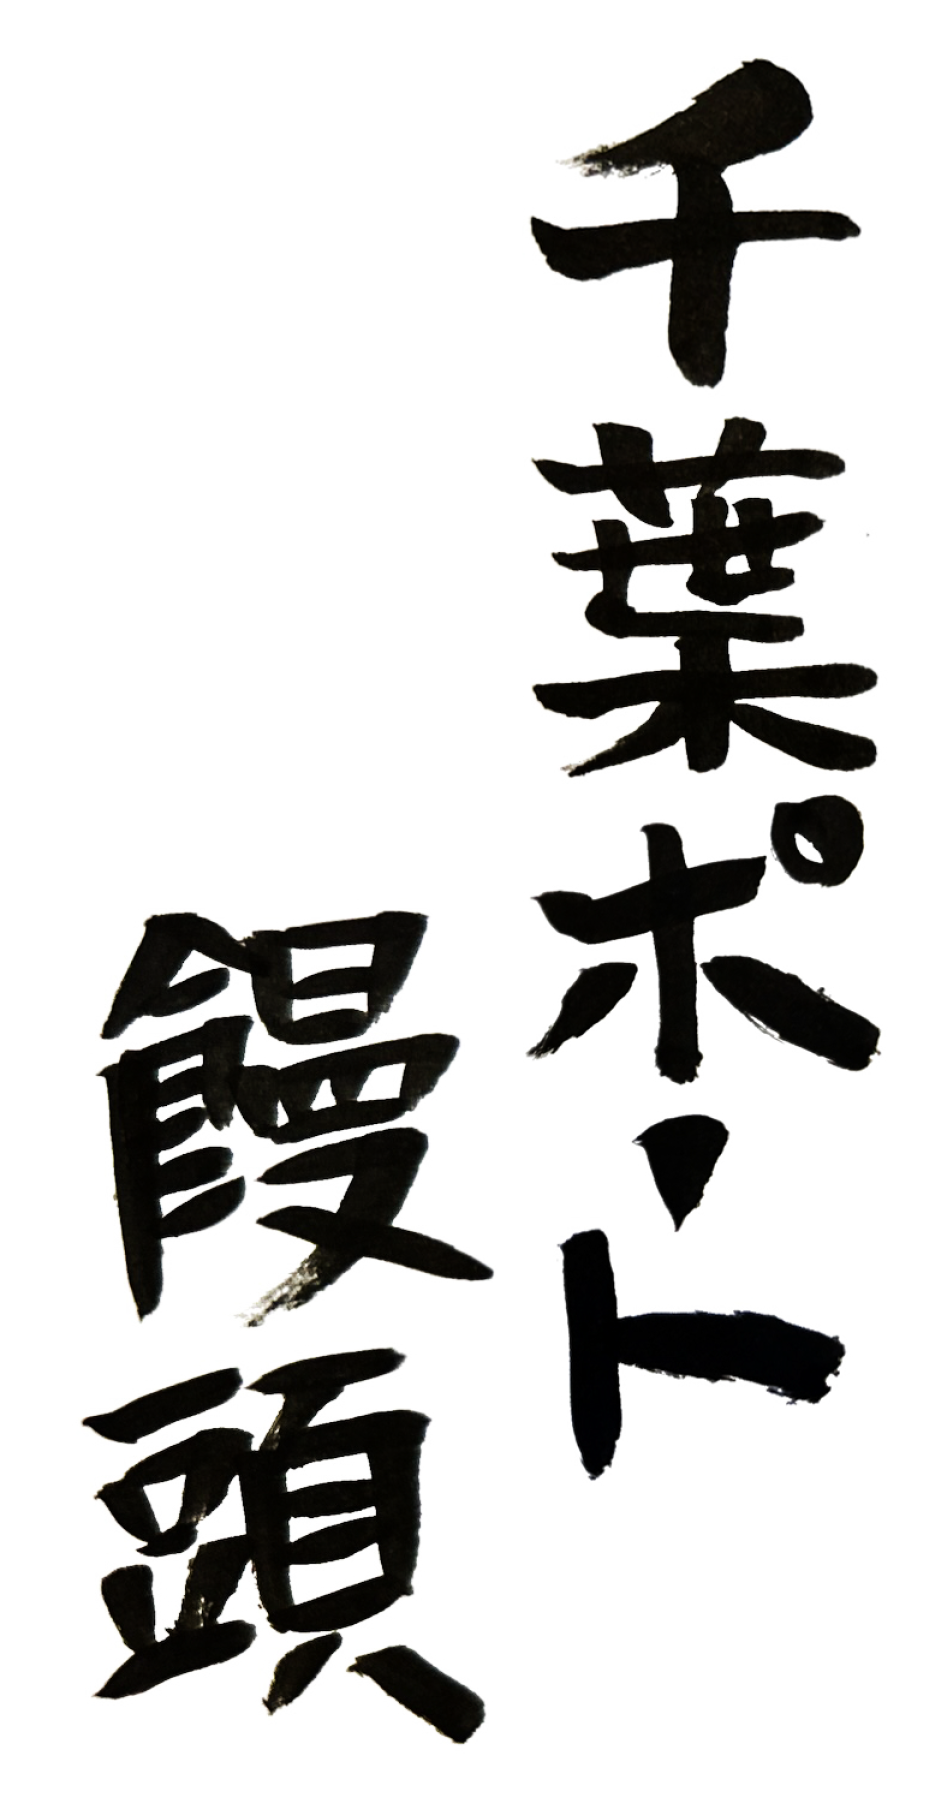 千葉ポート
饅頭